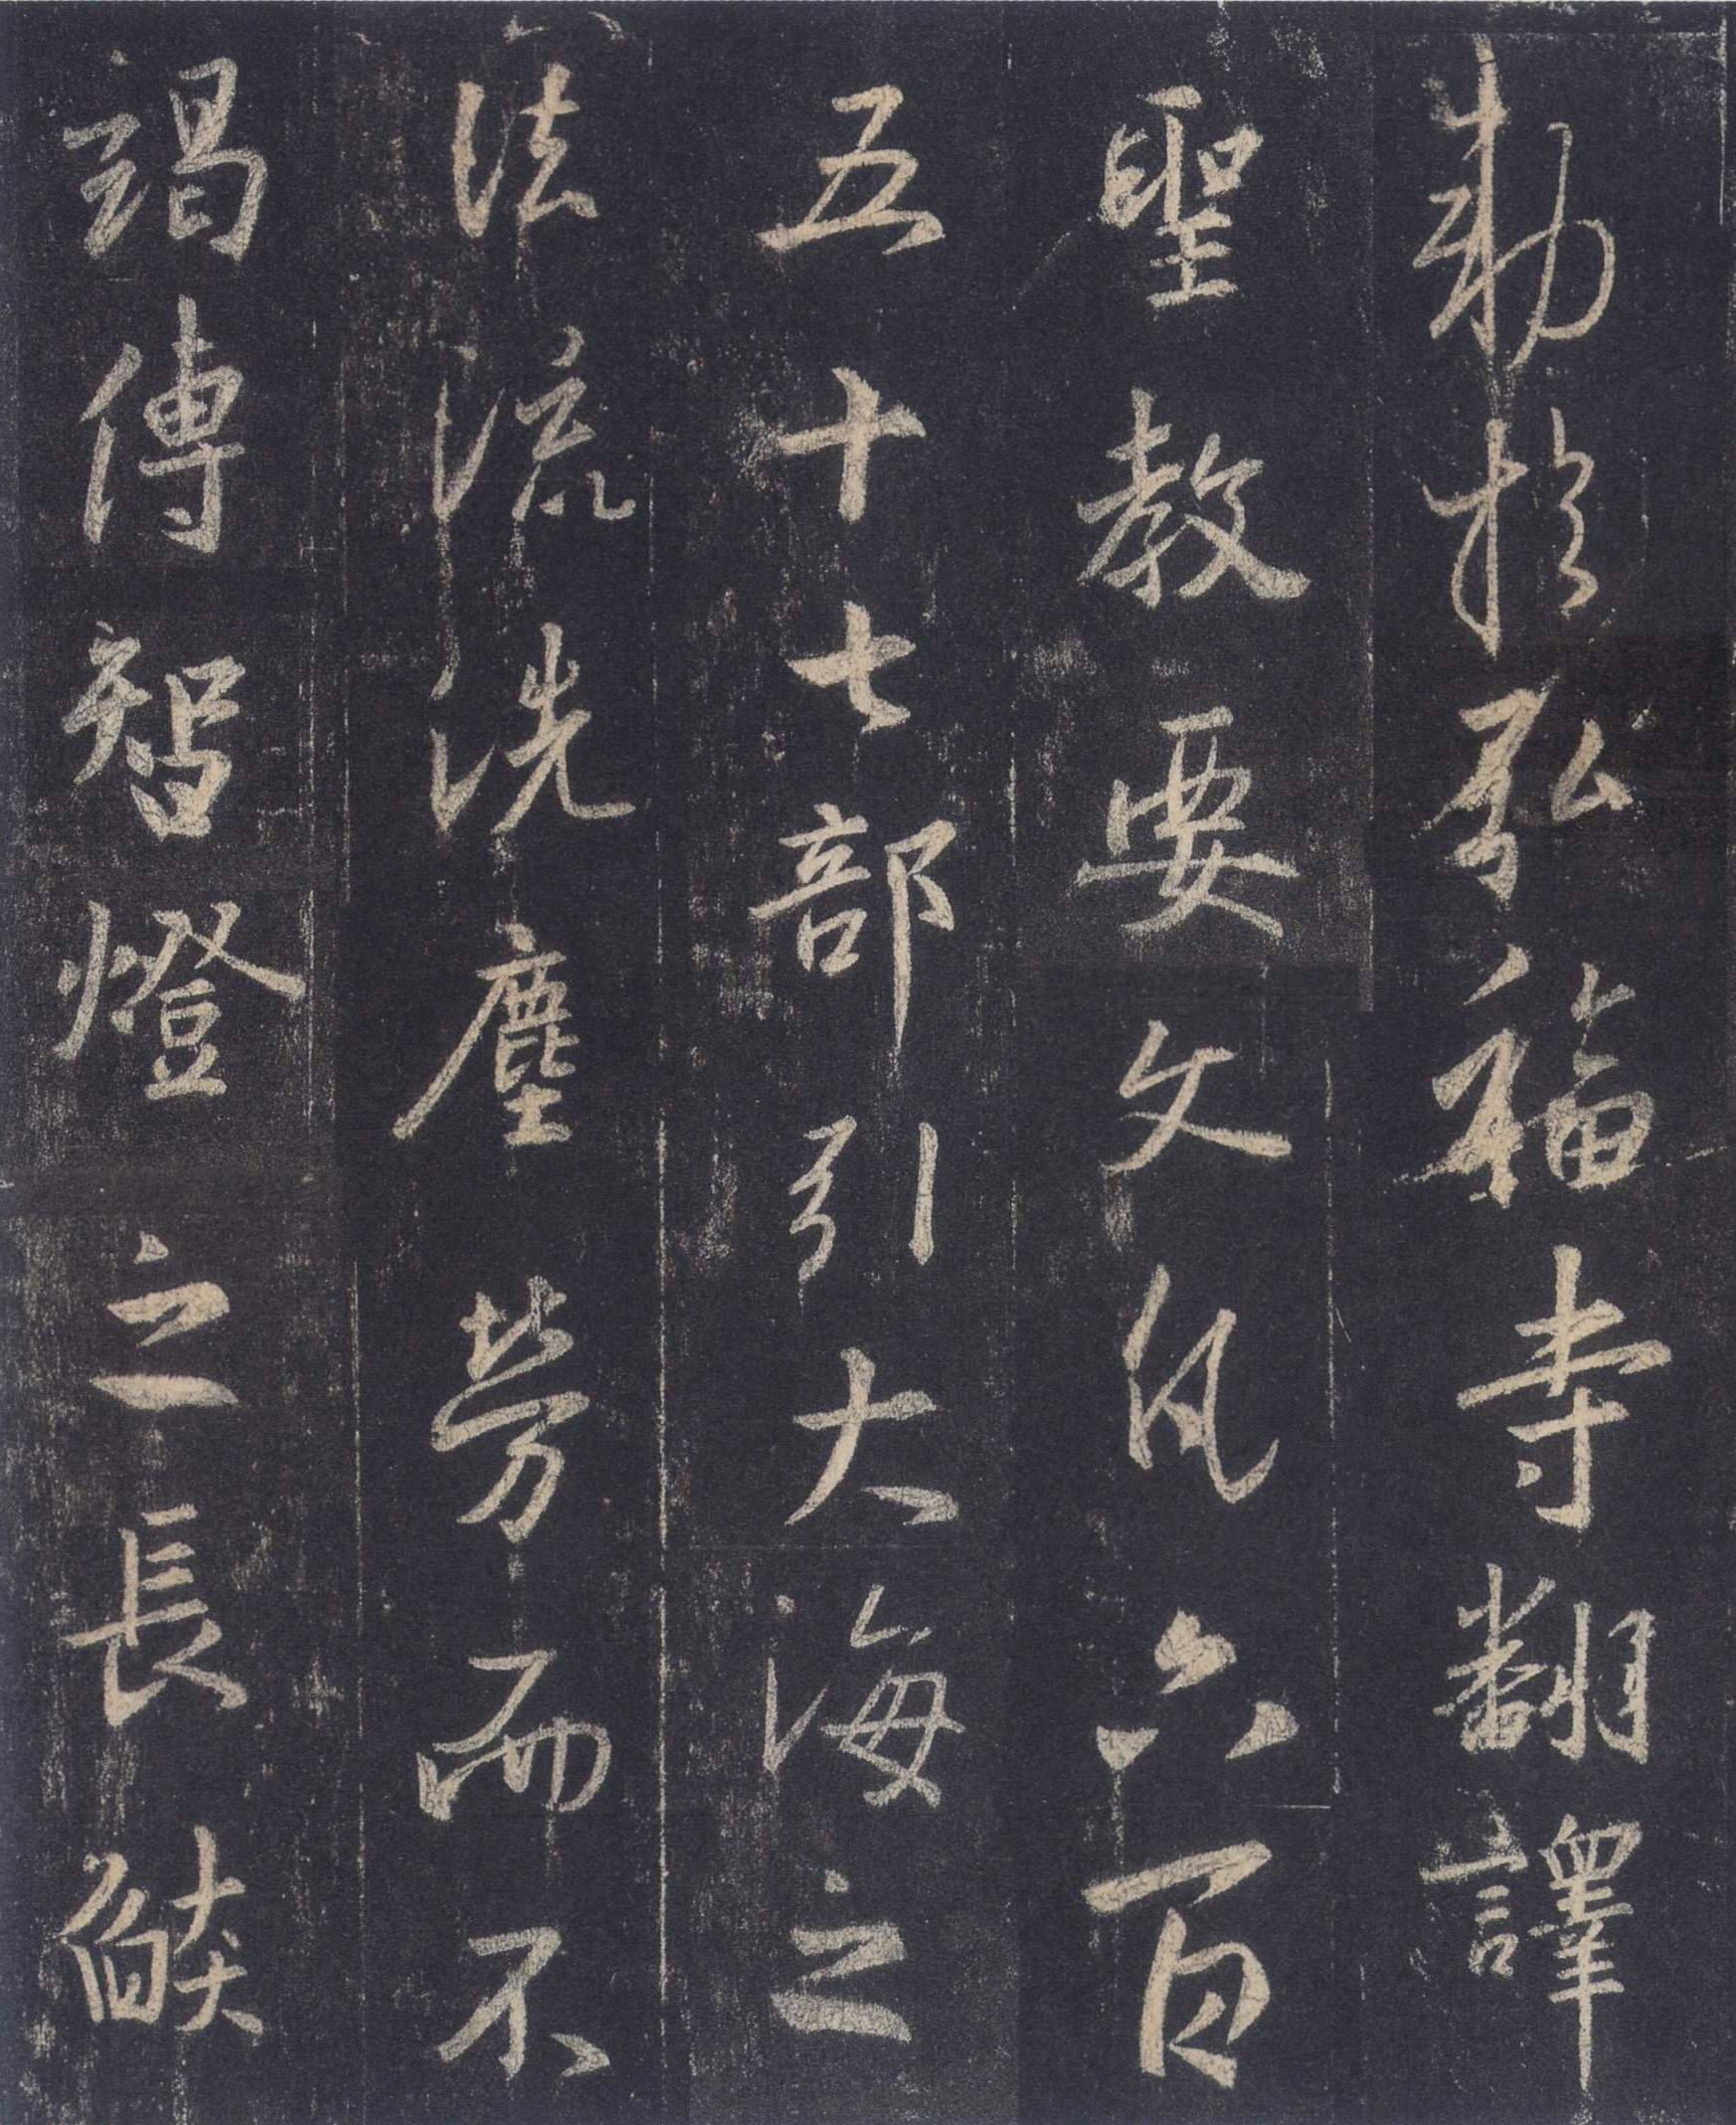 勅於弘福寺翻譯
聖教要文凡六百
五十七部引大海之
法流洗塵勞而不
竭傳智燈之長燄